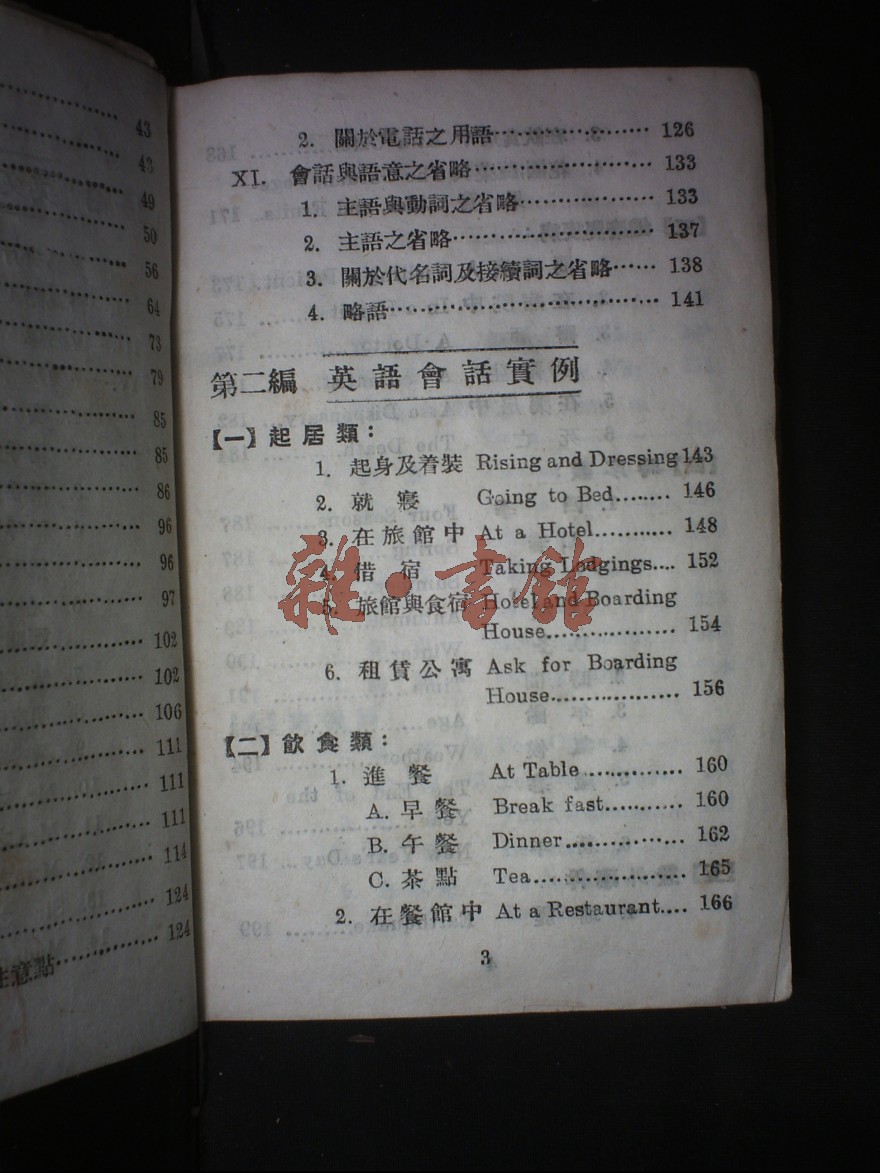 43
43
49
50
56
64
73
79
85
85
86
96
96
97
102
102
106
111
111
111
114
124
意點…………124
2. 關於電話之用語………………… 126
XI. 會話與語意之省略………………… 133
1. 主語與動詞之省略……………… 133
2. 主語之省略……………………… 137
3. 關於代名詞及接續詞之省略…… 138
4. 略語……………………………… 141
第二編 英語會話實例
【一】起居類：
1. 起身及着裝 Rising and Dressing 143
2. 就寢 Going to Bed........ 146
3. 在旅館中 At a Hotel............ 148
4. 借宿 Taking Lodgings.... 152
5. 旅館與食宿 Hotel and Boarding
House.................. 154
6. 租賃公寓 Ask for Boarding
House.................. 156
【二】飲食類：
1. 進餐 At Table .............. 160
A. 早餐 Break fast........... 160
B. 午餐 Dinner................ 162
C. 茶點 Tea..................... 165
2. 在餐館中 At a Restaurant.... 166
3
雜·書館